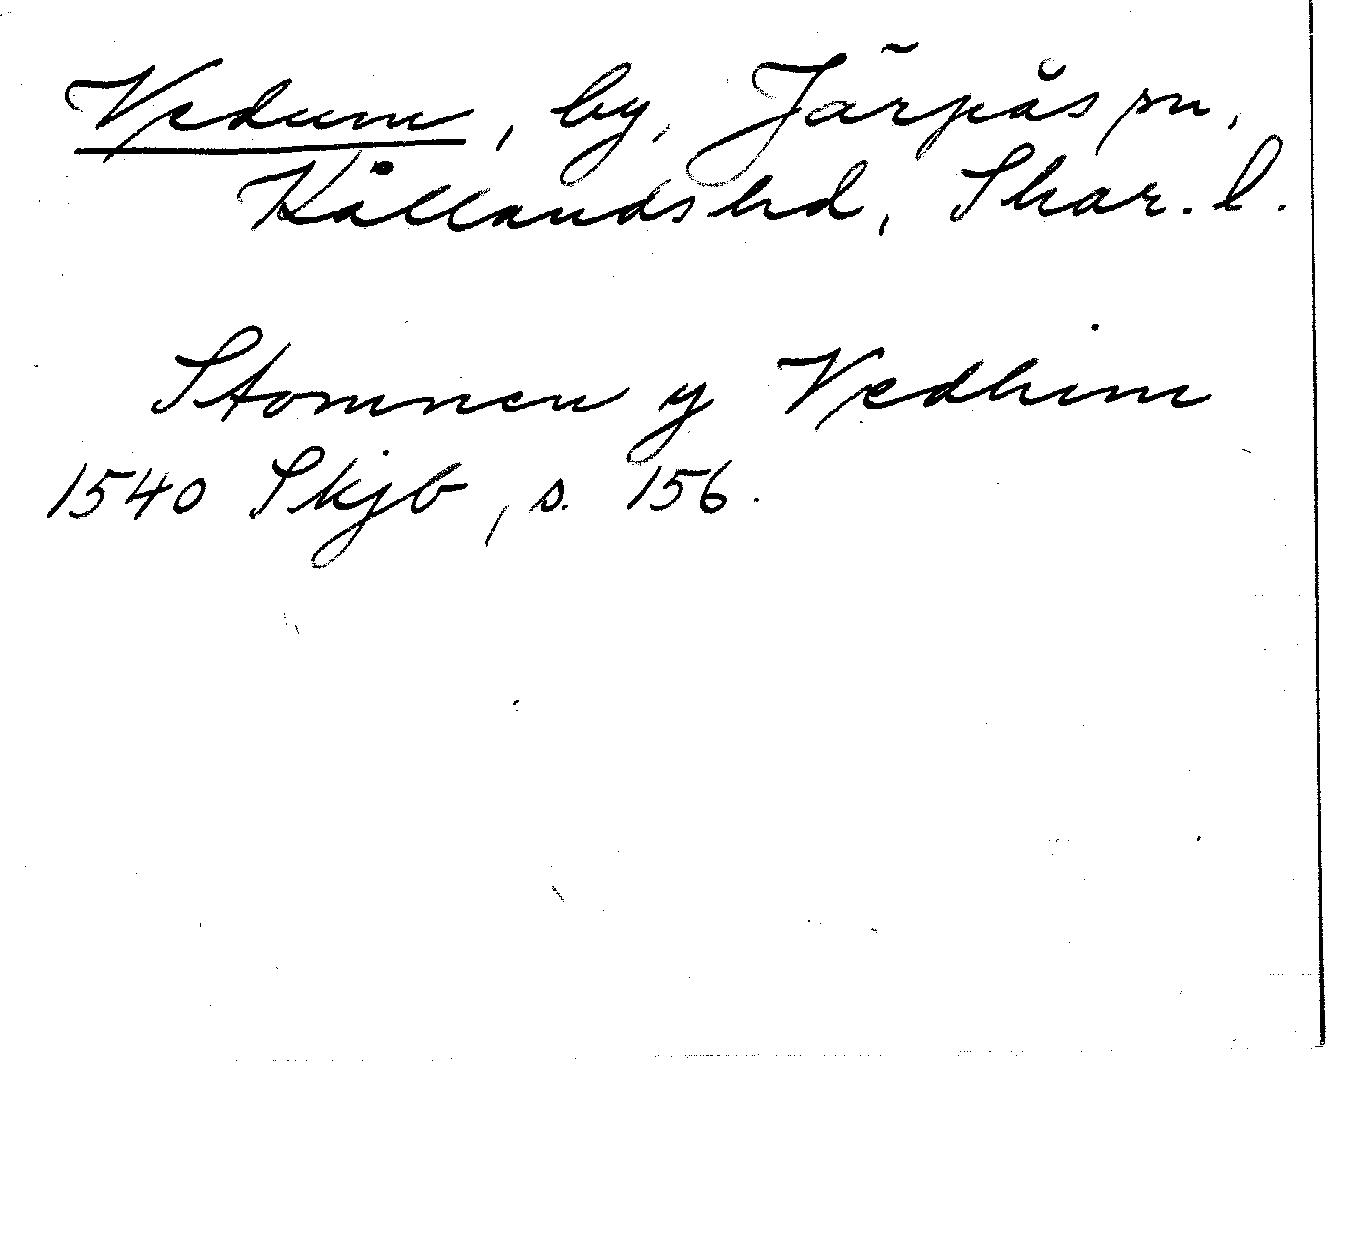 Vedum, by, Järpås sn,
Kållandshd, Skar. l.
Stommen y Vedhim
1540 Skjb, s. 156.